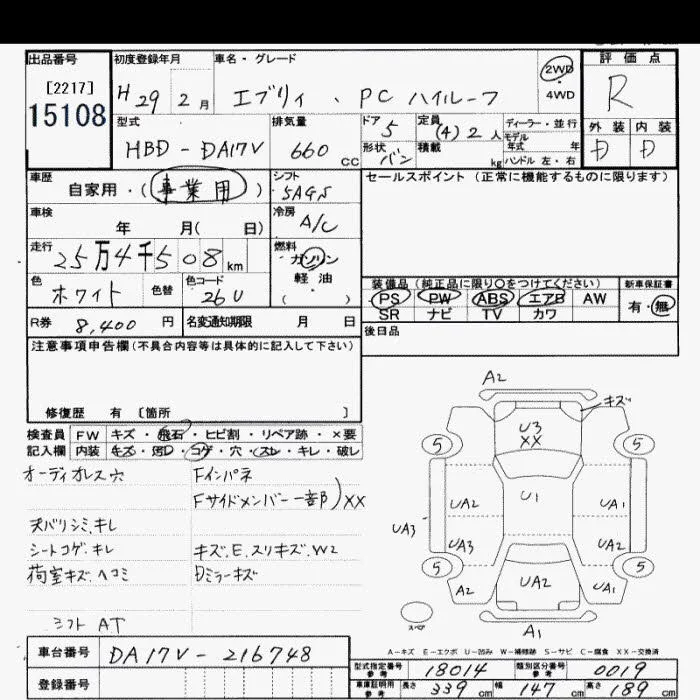 出品番号 初度登録年月 車名・グレード 2WD 4WD 評価点
[2217]
15108
H 29 2月 エブリィ . PC ハイルーフ R
型式 排気量 ドア 定員 ディーラー・並行
HBD-DA17V 660 CC 5 (4) 2 人 モデル年式 年
形状 バン 積載 kg ハンドル 左・右
外装 内装
D D
車歴 自家用・(事業用) シフト 5AGS
セールスポイント (正常に機能するものに限ります)
車検 年 月( 日) 冷房 A/C
走行 25万4千508km 燃料 ガソリン 軽油 ( ・ )
色 ホワイト 色替 色コード 26U
装備品 (純正品に限り〇をつけてください) 新車保証書
PS PW ABS エアB AW 有・無
SR ナビ TV カワ
R券 8,400 円 名変通知期限 月 日
後日品
注意事項申告欄 (不具合内容等は具体的に記入して下さい)
修復歴 有 〔箇所 〕
検査員 FW キズ・飛石・ヒビ割・リペア跡・×要
記入欄 内装 キズ・汚D・コゲ・穴・スレ・キレ・破レ
オーディオレス穴 Fインパネ
Fサイドメンバー一部)XX
天バリシミ、キレ
シートコゲ、キレ キズ、E、スリキズ、W2
荷室キズ、ヘコミ Dミラーキズ
シフト AT
A2
キズ
U3
XX
5 5
UA2 U1 UA1
UA3 UA3 UA1
5 5
A2 UA2 UA1
スペア
A1
A-キズ E-エクボ U-凹み W-補修跡 S-サビ C-腐食 XX-交換済
車台番号 DA17V-216748
型式指定番号 参考 18014 類別区分番号 参考 0019
登録番号
車庫証明用 参考 長さ 339cm 幅 147cm 高さ 189cm